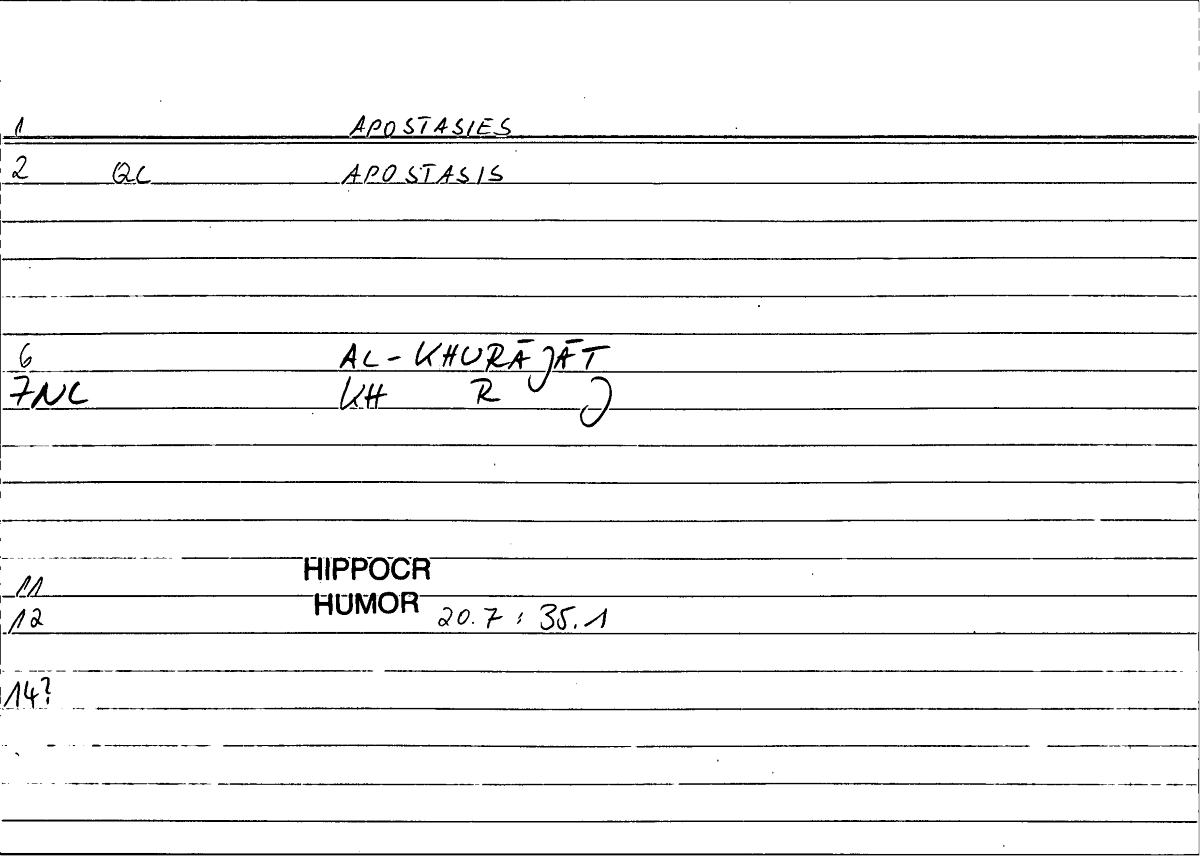 1 APOSTASIES
2 QC APOSTASIS
6 AL-KHURĀJĀT
7NC KH R J
HIPPOCR
11
HUMOR
12 20.7 ; 35.1
14?